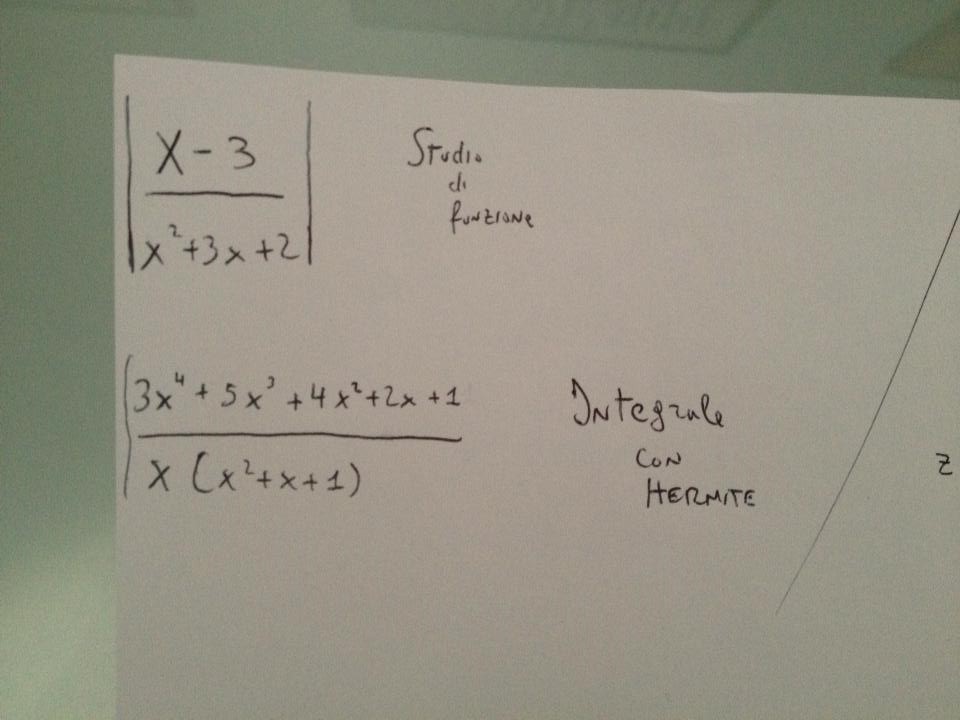 | x - 3 / x² + 3x + 2 |
Studio
di
funzione
3x⁴ + 5x³ + 4x² + 2x + 1
x (x² + x + 1)
Integrale
con
HERMITE
z